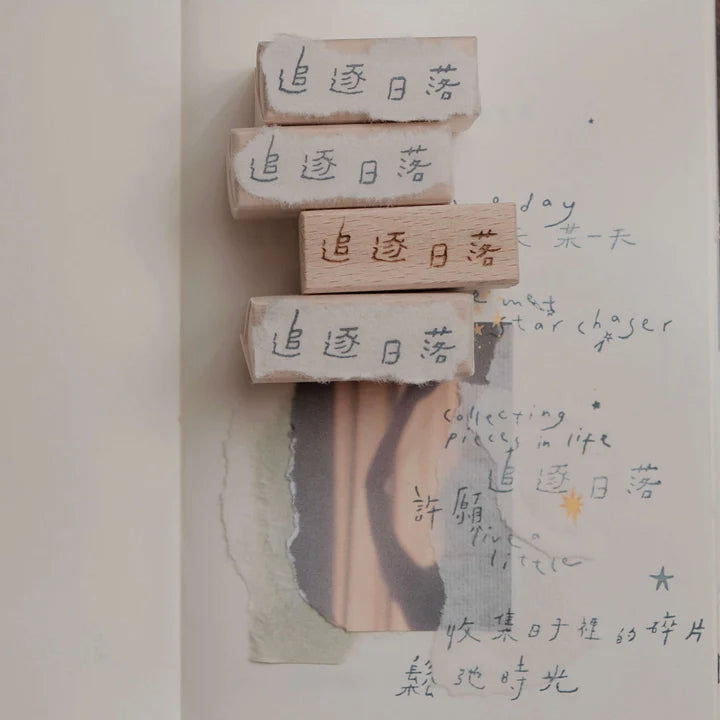 追逐日落
追逐日落
追逐日落
追逐日落
a day
天 某一天
met
star chaser
collecting
pieces in life
追逐日落
許願
live a
little
收集日子裡的碎片
鬆弛時光